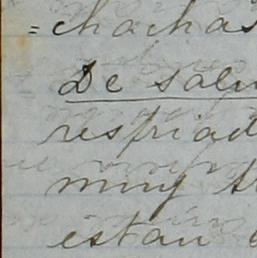 = chachas
De salu
respriad
muy t
estan